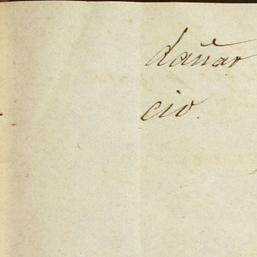 dañar
cio.